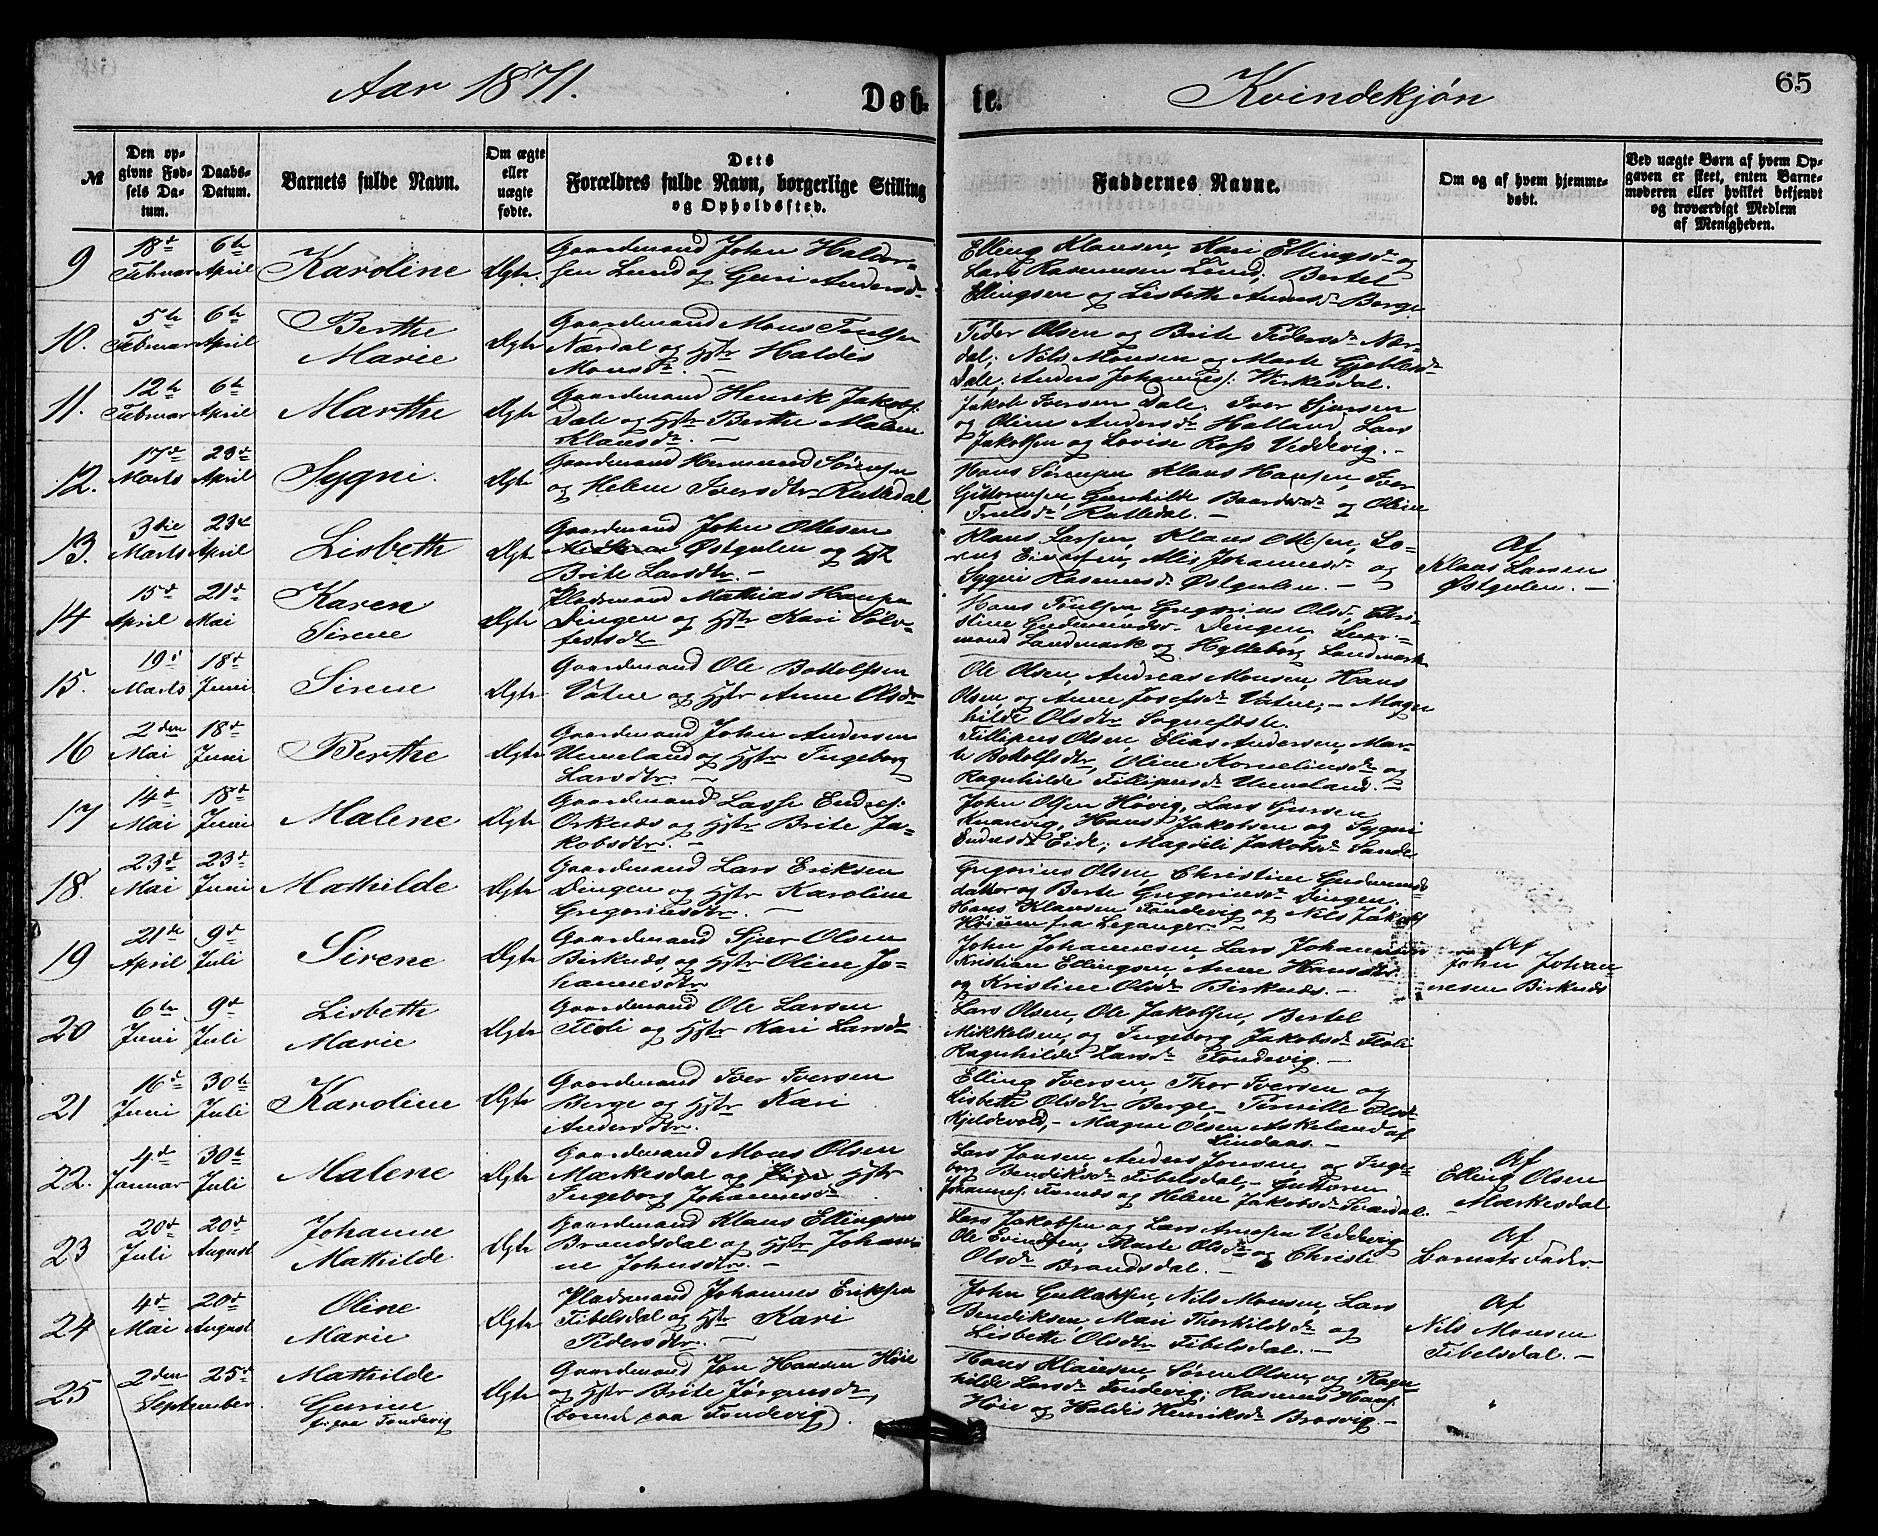 Aar 1871.
Døb-
te.
Kvindekjøn
65
№
Den op-
givne Fød-
sels Da-
tum.
Daabs-
Datum.
Barnets fulde Navn.
Om ægte
eller
uægte
fødte.
Dets
Forældres fulde Navn, borgerlige Stilling
og Opholdssted.
Faddernes Navne.
Om og af hvem hjemme-
døbt.
Ved uægte Børn af hvem Op-
gaven er skeet, enten Barne-
moderen eller hvilket bekjendt
og troværdigt Medlem
af Menigheden.
9
18de
Februar
6te
April
Karoline
Ægte
Gaardmand John Haldor-
sen Lund og Guri Andersdr
Elling Klausen, Kari Ellingsdr og
Lars Rasmussen Lund, Bertel
Ellingsen og Lisbeth Andersdr Berge
10.
5te
Februar
6te
April
Berthe
Marie
Ægte
Gaardmand Mons Troelsen
Nærdal og Hstr Haldis
Monsdr. —
Peder Olsen og Brite Pedersdr Nær-
dal; Nils Monsen og Marte Gjertsdr
Dale; Anders Johannes: Virkesdal.
11.
12te
Februar
6te
April
Marthe
Ægte
Gaardmand Henrik Jakobs:
Dale og Hstr Berthe Malene
Klausdr. —
Jakob Iversen Dale, Iver Sjursen
og Oline Andersdr Halland, Lars
Jakobsen og Lovise Ross Veddevig. —
12.
17de
Marts
23de
April
Sygni.
Ægte
Gaardmand Hermund Sørensen
og Helene Iversdtr Rutledal
Hans Sørensen, Klaus Hansen, Iver
Guttormsen, Gunhilde Baardsdr og Oline
Troelsdr Rutledal. —
13.
3die
Marts
23de
April
Lisbeth
Ægte
Gaardmand John Ottesen
Østgulen og Hstr
Brite Larsdtr. —
Klaus Larsen, Klaus Ottesen, Lo-
rens Einarsen, Alis Johannesdr og
Sygni Rasmusdr Østgulen. —
Af
Klaus Larsen
Østgulen. —
14
15de
April
21de
Mai
Karen
Sirene
Ægte
Pladsmand Mathias Hansen
Dingen og Hstr Kari Sølv-
festsdtr
Hans Troelsen, Gregorius Olsdr, Chri-
stine Gudmundsdr Dingen,
mund Landmark og Hylleborg Landmark
15.
19de
Marts
18de
Juni
Sirene
Ægte
Gaardmand Ole Botolfsen
Vatne og Hstr Anne Olsdr
Ole Olsen, Andreas Monsen, Hans
Olsen, og Anne Josefsdr Vatne; — Magn
hilde Olsdtr Sognefæste.
16
2den
Mai
18de
Juni
Berthe
Ægte
Gaardmand John Andersen
Unneland og Hstr Ingeborg
Larsdtr. —
Fillipus Olsen, Elias Andersen, Mar-
te Botolfsdtr, Oline Korneliusdr og
Ragnhilde Fillipusdr Unneland. —
17
14de
Mai
18de
Juni
Malene
Ægte
Gaardmand Lasse Endres:
Orknæs og Hstr Brite Ja-
kobsdtr. —
John Olsen Høvig, Lars Sjursen
Knarvig, Hans Jakobsen og Sygni
Endresdr Eide; Magdeli Jakobsdr Sande
18.
23de
Mai
23de
Juni
Mathilde
Ægte
Gaardmand Lars Eriksen
Dingen og Hstr Karoline
Gregoriusdtr. —
Gregorius Olsen, Christine Gudmunds
datter og Berte Gregoriusdr Dingen;
Hans Klausen Tondevig og Nils Jakobs
Høium fra Leganger —
19
21de
April
9de
Juli
Sirene
Ægte
Gaardmand Sjur Olsen
Birknæs og Hstr Oline Jo-
hannesdtr
John Johannesen, Lars Johannesen
Kristian Ellingsen, Anne Hansdtr
og Kristine Olsdr Birknæs. —
Af
John Johan-
nesen Birknæs
20
6te
Juni
9de
Juli
Lisbeth
Marie
Ægte
Gaardmand Ole Larsen
Floli og Hstr Kari Larsdr
Lars Olsen, Ole Jakobsen, Bertel
Mikkelsen, og Ingeborg Jakobsdr Floli
Ragnhilde Larsdr Tondevig. —
21
16de
Juni
30te
Juli
Karoline
Ægte
Gaardmand Iver Iversen
Berge og Hstr Kari
Andersdtr.
Elling Iversen, Thor Iversen og
Lisbeth Olsdtr Berge, — Pernille Olsdr
Kjeldevold, — Magne Olsen Askeland af
Lindaas —
22.
4de
Januar
30te
Juli
Malene
Ægte
Gaardmand Mons Olsen
Mærkesdal og Hstr
Ingeborg Johannesdr
Lars Jonsen, Anders Jonsen, og Inge-
borg Bendiksdr Tibelsdal, — Guttorm
Johannes: Fornæs og Helene Jakobsdr Sværdal.
Af
Elling Olsen
Mærkesdal
23
20de
Juli
20de
August
Johanne
Mathilde
Ægte
Gaardmand Klaus Ellingsen
Brandsdal og Hstr Johan-
ne Johnsdtr. —
Lars Jakobsen og Lars Arnesen Veddevig
Ole Evindsen, Marte Olsdr og Christi
Olsdr Brandsdal. —
Af
Barnets Fader
24
4de
Mai
20de
August
Oline
Marie
Ægte
Pladsmand Johannes Eriksen
Tibelsdal og Hstr Kari
Pedersdtr. —
John Gullaksen, Nils Monsen, Lars
Bendiksen, Mari Thorkildsdr og
Lisbeth Olsdtr Tibelsdal. —
Af
Nils Monsen
Tibelsdal. —
25
2den
25de
September
Mathilde
Gurine
f. paa Tondevig
Ægte
Gaardmand Jon Hansen Høie
og Hstr Brite Jørgensdr,
(boende paa Tondevig).
Hans Klausen, Søren Olsen, og Ragn-
hilde Larsdr Tondevig; Rasmus Hans:
Høie og Haldis Henriksdr Brosvig. —
"